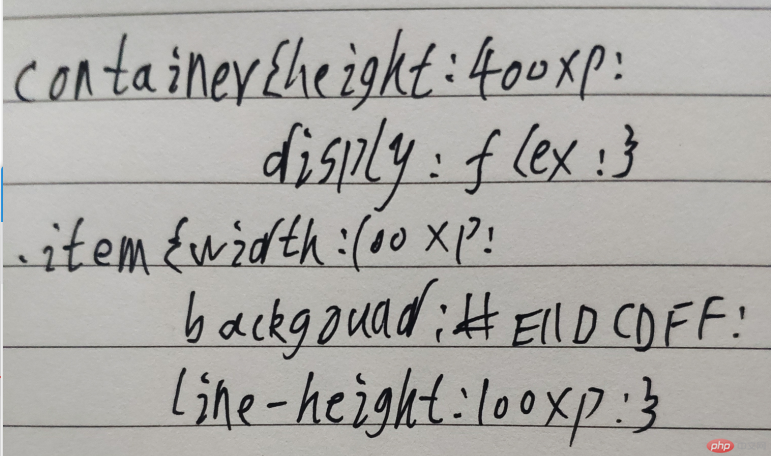 container{height:400xp:
disply:flex:}
.item{width:100xp:
backgouad:#E11DCDFF:
line-height:100xp:}
php